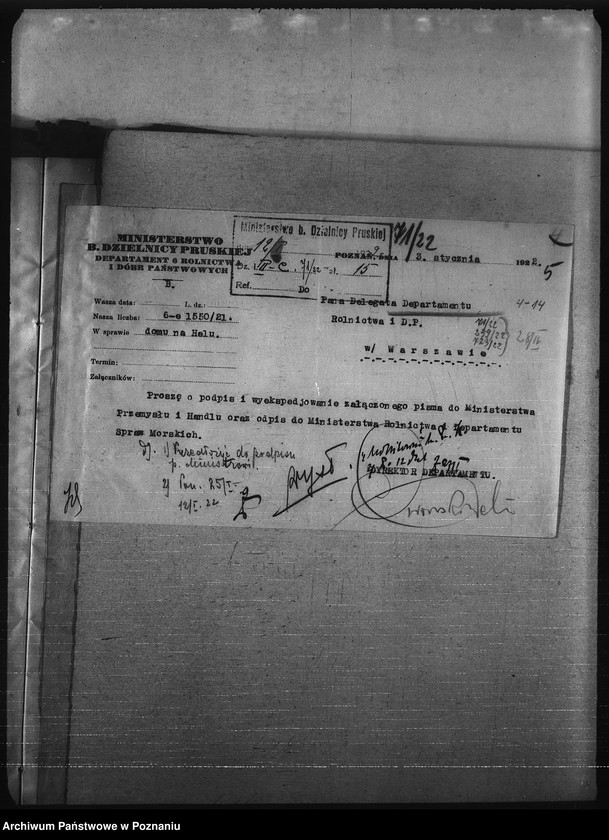 MINISTERSTWO
B. DZIELNICY PRUSKIEJ
DEPARTAMENT 6 ROLNICTWA
I DÓBR PAŃSTWOWYCH
B.
Ministerstwo b. Dzielnicy Pruskiej
Dz. VII-C. 71/22 zł. 15
Ref. Do
71/22
POZNAŃ, DNIA 3. stycznia 1922.
5
Wasza data: L. dz.:
Nasza liczba: 6-e 1550/21.
W sprawie domu na Helu.
Termin:
Załączników:
Pana Delegata Departamentu
Rolnictwa i D.P.
w/ Warszawie
4-14
71/22
299/22
723/22
Proszę o podpis i wyekspedjowanie załączonego pisma do Ministerstwa
Przemysłu i Handlu oraz odpis do Ministerstwa Rolnictwa i Departamentu
Spraw Morskich.
1) Przedłożyć do podpisu
p. ministrowi.
2) Pon. 25/I
12/I. 22
DYREKTOR DEPARTAMENTU.
Archiwum Państwowe w Poznaniu